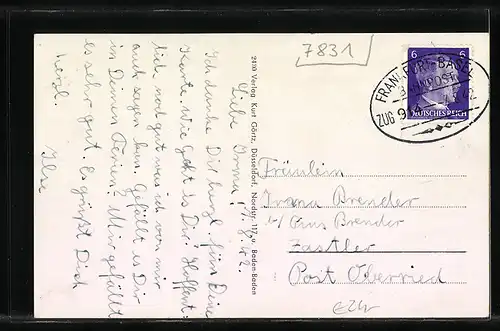 7831
6 6
FRANKFURT-BASEL
BAHNPOST
ZUG
DEUTSCHES REICH
2810 Verlag Kurt Görtz, Düsseldorf, Nordstr. 117, u. Baden-Baden
Liebe Irma!
Ich danke Dir herzl. für Deine
Karte. Wie geht es Dir? Hoffent-
lich noch gut was ich von mir
auch sagen kann. Gefällt es Dir
in Deinen Ferien? Mir gefällt
es sehr gut. Es grüßt Dich
herzl. Ilse
Fräulein
Irma Brender
b/ Pius Brender
Zastler
Post Oberried